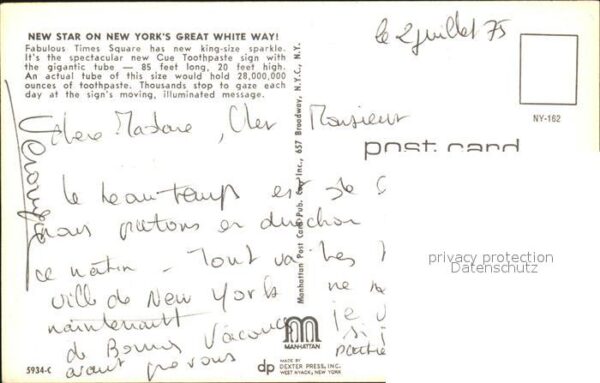 NEW STAR ON NEW YORK'S GREAT WHITE WAY!
Fabulous Times Square has new king-size sparkle.
It's the spectacular new Cue Toothpaste sign with
the gigantic tube — 85 feet long, 20 feet high.
An actual tube of this size would hold 28,000,000
ounces of toothpaste. Thousands stop to gaze each
day at the sign's moving, illuminated message.
le 2 juillet 75
NY-162
post card
Chère Madame, Cher Monsieur
le beau temps est de
nous partons en direction
ce matin - Tout va très
ville de New York ne
maintenant je
de Bonnes Vacances si
avant que vous
Manhattan Post Card Pub. Co., Inc., 657 Broadway, N.Y.C., N.Y.
MANHATTAN
5934-C
dp
MADE BY
DEXTER PRESS, INC.
WEST NYACK, NEW YORK
privacy protection
Datenschutz